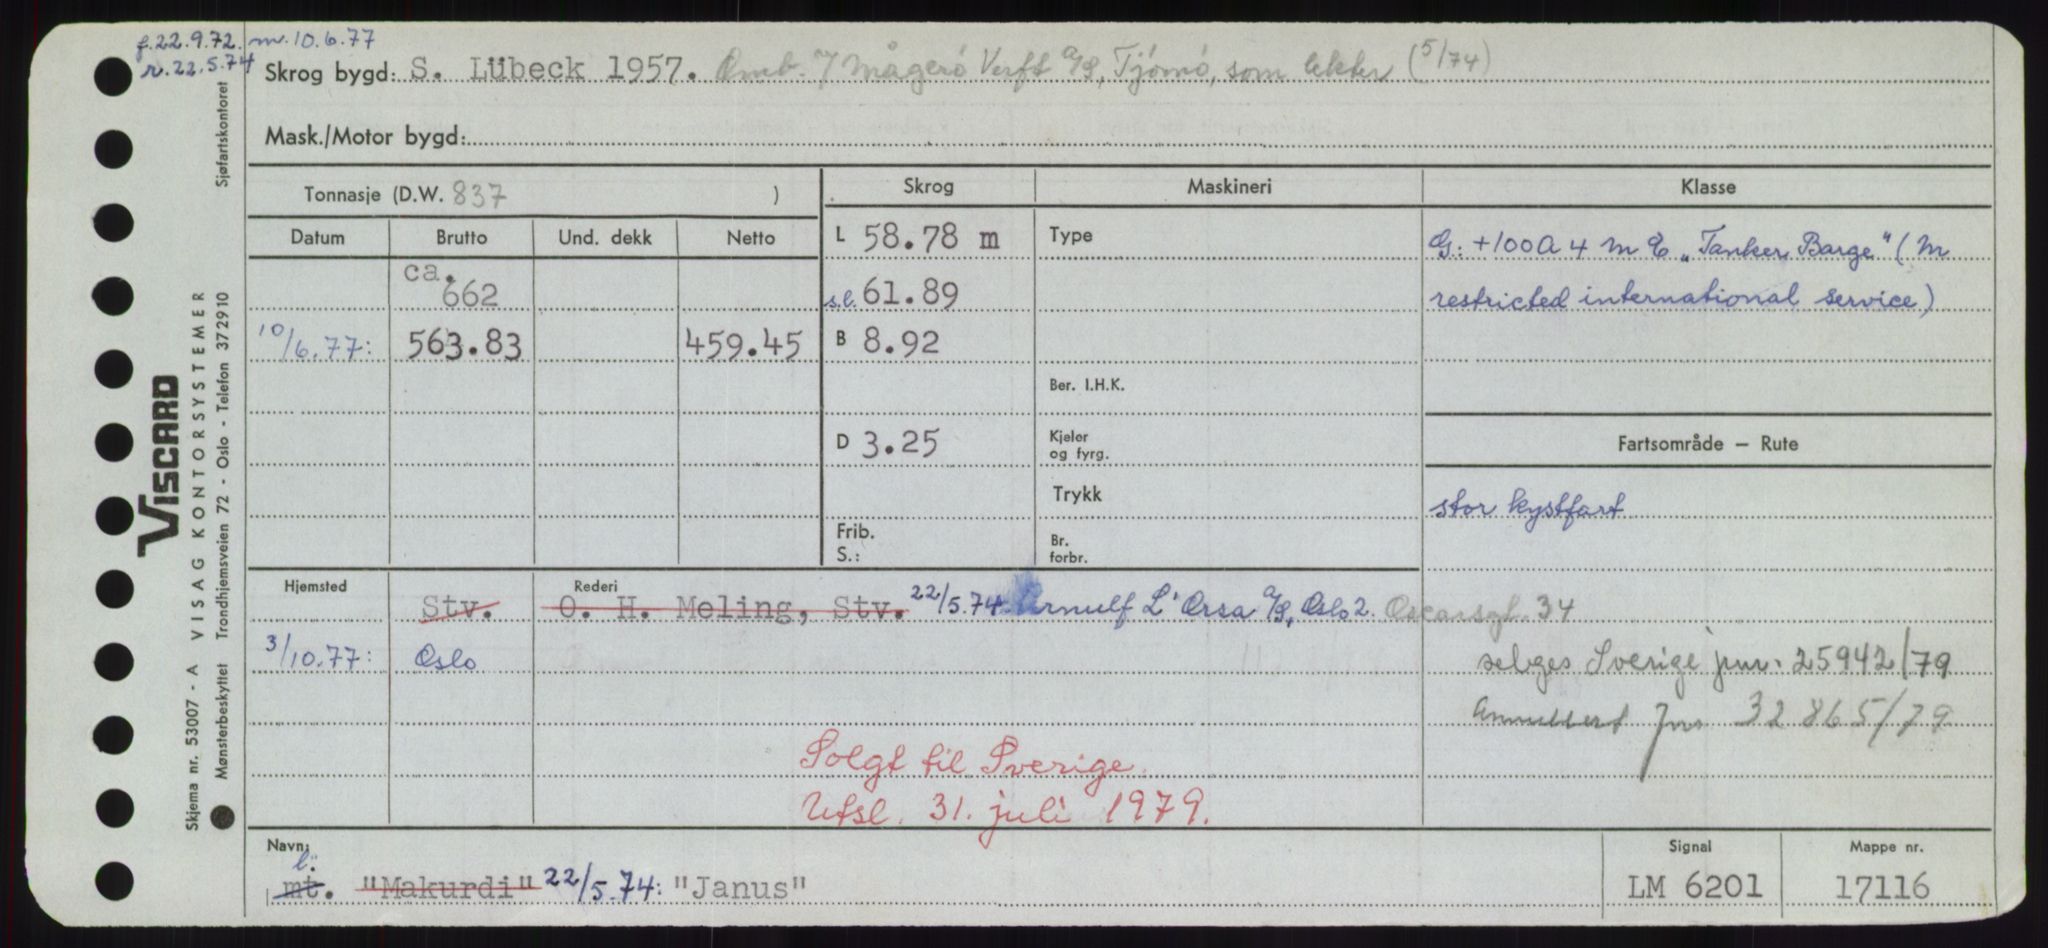 f.22.9.72. m.10.6.77
r.22.5.74
Skrog bygd: S. Lübeck 1957. Omb. v/ Mågerø Verft A/S, Tjömö, som lekter (5/74)
Mask./Motor bygd:
Tonnasje (D.W. 837 )
Skrog
Maskineri
Klasse
Datum
Brutto
Und. dekk
Netto
ca. 662
10/6.77: 563.83 459.45
L 58.78 m
s.l. 61.89
B 8.92
D 3.25
Frib.
S.:
Type
Ber. I.H.K.
Kjeler
og fyrg.
Trykk
Br.
forbr.
G: +100A 4 M E „Tanker Barge" (M
restricted international service)
Fartsområde – Rute
stor kystfart
Hjemsted
Rederi
Stv. O. H. Meling, Stv. 22/5.74. Arnulf L'Orsa A/S, Oslo 2. Oscarsgt. 34
3/10.77: Oslo
selges Sverige jnr. 25942/79
Annullert Jnr 32865/79
Solgt til Sverige.
Utsl. 31. juli 1979.
Navn:
l:
mt. "Makurdi" 22/5.74: "Janus"
Signal
LM 6201
Mappe nr.
17116
VISCARD
Skjema nr. 53007 - A VISAG KONTORSYSTEMER
Mønsterbeskyttet Trondhjemsveien 72 - Oslo - Telefon 372910 Sjøfartskontoret